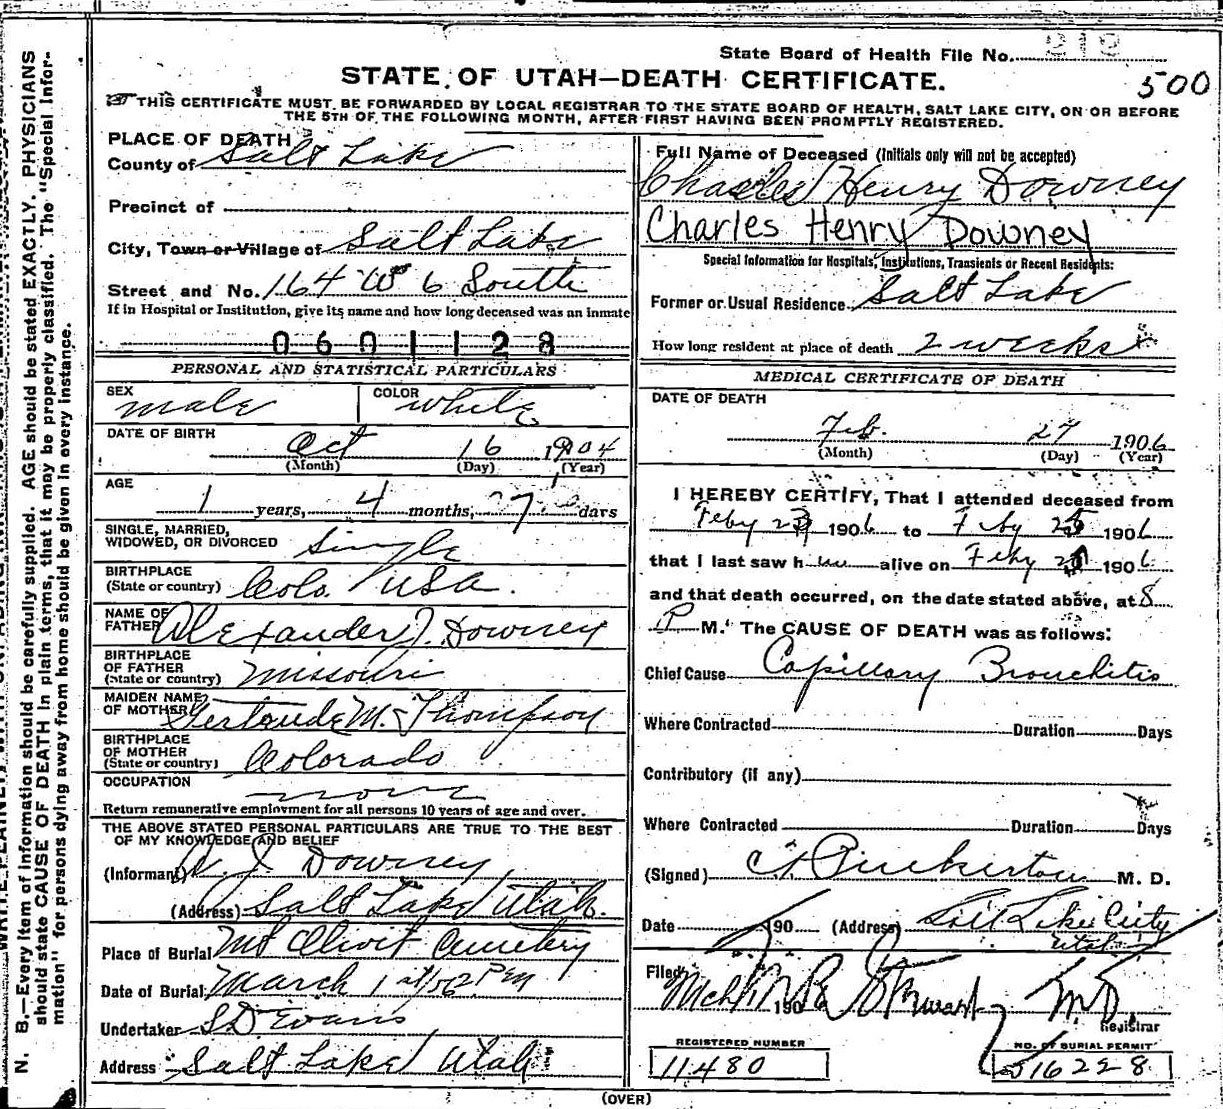 State Board of Health File No. 212
500
STATE OF UTAH—DEATH CERTIFICATE.
THIS CERTIFICATE MUST BE FORWARDED BY LOCAL REGISTRAR TO THE STATE BOARD OF HEALTH, SALT LAKE CITY, ON OR BEFORE
THE 5TH OF THE FOLLOWING MONTH, AFTER FIRST HAVING BEEN PROMPTLY REGISTERED.
PLACE OF DEATH
County of Salt Lake
Precinct of
City, Town or Village of Salt Lake
Street and No. 164 W 6 South
If in Hospital or Institution, give its name and how long deceased was an inmate
0601128
PERSONAL AND STATISTICAL PARTICULARS
SEX male
COLOR white
DATE OF BIRTH
Oct 16 1904
(Month) (Day) (Year)
AGE
1 years, 4 months, days
SINGLE, MARRIED,
WIDOWED, OR DIVORCED Single
BIRTHPLACE
(State or country) Colo. USA.
NAME OF
FATHER Alexander J. Downey
BIRTHPLACE
OF FATHER
(State or country) Missouri
MAIDEN NAME
OF MOTHER Gertrude M. Thompson
BIRTHPLACE
OF MOTHER
(State or country) Colorado
OCCUPATION none
Return remunerative employment for all persons 10 years of age and over.
THE ABOVE STATED PERSONAL PARTICULARS ARE TRUE TO THE BEST
OF MY KNOWLEDGE AND BELIEF
(Informant) A. J. Downey
(Address) Salt Lake Utah.
Place of Burial Mt Olivet Cemetery
Date of Burial March 1 PM
Undertaker S D Evans
Address Salt Lake Utah
Full Name of Deceased (Initials only will not be accepted)
Charles Henry Downey
Charles Henry Downey
Special Information for Hospitals, Institutions, Transients or Recent Residents:
Former or Usual Residence Salt Lake
How long resident at place of death 2 weeks
MEDICAL CERTIFICATE OF DEATH
DATE OF DEATH
Feb. 27 1906
(Month) (Day) (Year)
I HEREBY CERTIFY, That I attended deceased from
Feby 1906 to Feby 1906
that I last saw h alive on Feby 1906
and that death occurred, on the date stated above, at 8
P M. The CAUSE OF DEATH was as follows:
Chief Cause Capillary Bronchitis
Where Contracted Duration Days
Contributory (if any)
Where Contracted Duration Days
(Signed) Pinkerton M. D.
Date 190 (Address) Salt Lake City
Utah
Filed Mch 190 Stewart MD
Registrar
REGISTERED NUMBER
11480
NO. OF BURIAL PERMIT
516228
(OVER)
N. B.—Every item of information should be carefully supplied. AGE should be stated EXACTLY. PHYSICIANS
should state CAUSE OF DEATH in plain terms, that it may be properly classified. The "Special Infor-
mation" for persons dying away from home should be given in every instance.